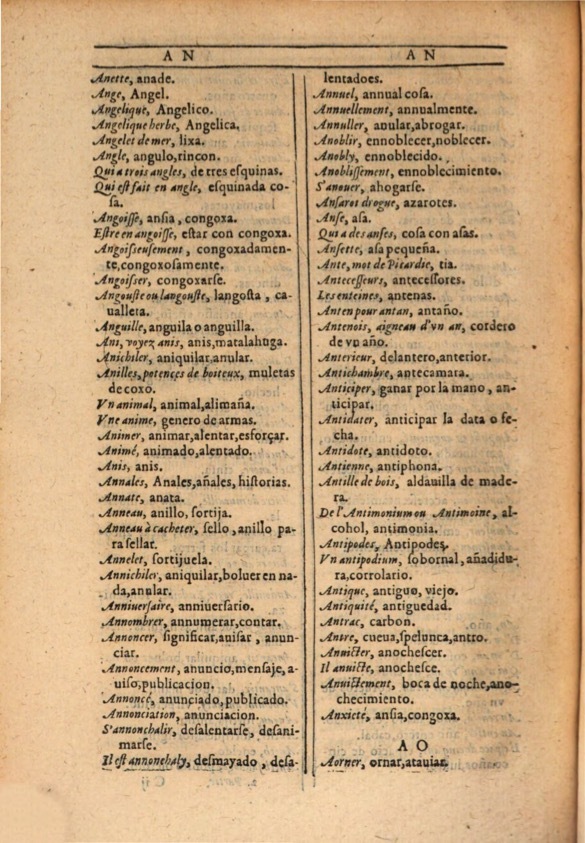 A N
Anette, anade.
Ange, Angel.
Angelique, Angelico.
Angelique herbe, Angelica.
Angelet de mer, lixa.
Angle, angulo, rincon.
Qui a trois angles, de tres esquinas.
Qui est fait en angle, esquinada co-
sa.
Angoisse, ansia, congoxa.
Estre en angoisse, estar con congoxa.
Angoisseusement, congoxadamen-
te, congoxosamente.
Angoisser, congoxarse.
Angouste ou langouste, langosta, ca-
ualleta.
Anguille, anguila o anguilla.
Ani, voyez anis, anis, matalahuga.
Anichiler, aniquilar, anular.
Anilles, potences de boiteux, muletas
de coxo.
Vn animal, animal, alimaña.
Vne anime, genero de armas.
Animer, animar, alentar, esforçar.
Animé, animado, alentado.
Anis, anis.
Annales, Anales, añales, historias.
Annate, anata.
Anneau, anillo, sortija.
Anneau à cacheter, sello, anillo pa-
ra sellar.
Annelet, sortijuela.
Annichiler, aniquilar, boluer en na-
da, anular.
Anniuersaire, anniuersario.
Annombrer, annumerar, contar.
Annoncer, significar, auisar, anun-
ciar.
Annoncement, anuncio, mensaje, a-
uiso, publicacion.
Annoncé, anunciado, publicado.
Annonciation, anunciacion.
S'annonchalir, desalentarse, desani-
marse.
Il est annonchaly, desmayado, desa-
A N
lentadoes.
Annuel, annual cosa.
Annuellement, annualmente.
Annuller, anular, abrogar.
Anoblir, ennoblecer, noblecer.
Anobly, ennoblecido.
Anoblissement, ennoblecimiento.
S'anouer, ahogarse.
Ansarot drogue, azarotes.
Anse, asa.
Qui a des anses, cosa con asas.
Ansette, asa pequeña.
Ante, mot de Picardie, tia.
Antecesseurs, antecessores.
Les enteines, antenas.
Anten pour antan, antaño.
Antenois, aigneau d'vn an, cordero
de vn año.
Anterieur, delantero, anterior.
Antichambre, antecamara.
Anticiper, ganar por la mano, an-
ticipar.
Antidater, anticipar la data o fe-
cha.
Antidote, antidoto.
Antienne, antiphona.
Antille de bois, aldauilla de made-
ra.
De l'Antimonium ou Antimoine, al-
cohol, antimonia.
Antipodes, Antipodes.
Vn antipodium, sobornal, añadidu-
ra, corrolario.
Antique, antiguo, viejo.
Antiquité, antiguedad.
Antrac, carbon.
Antre, cueua, spelunca, antro.
Anuicter, anochescer.
Il anuicte, anochesce.
Anuictement, boca de noche, ano-
checimiento.
Anxieté, ansia, congoxa.
A O
Aorner, ornar, atauiar.